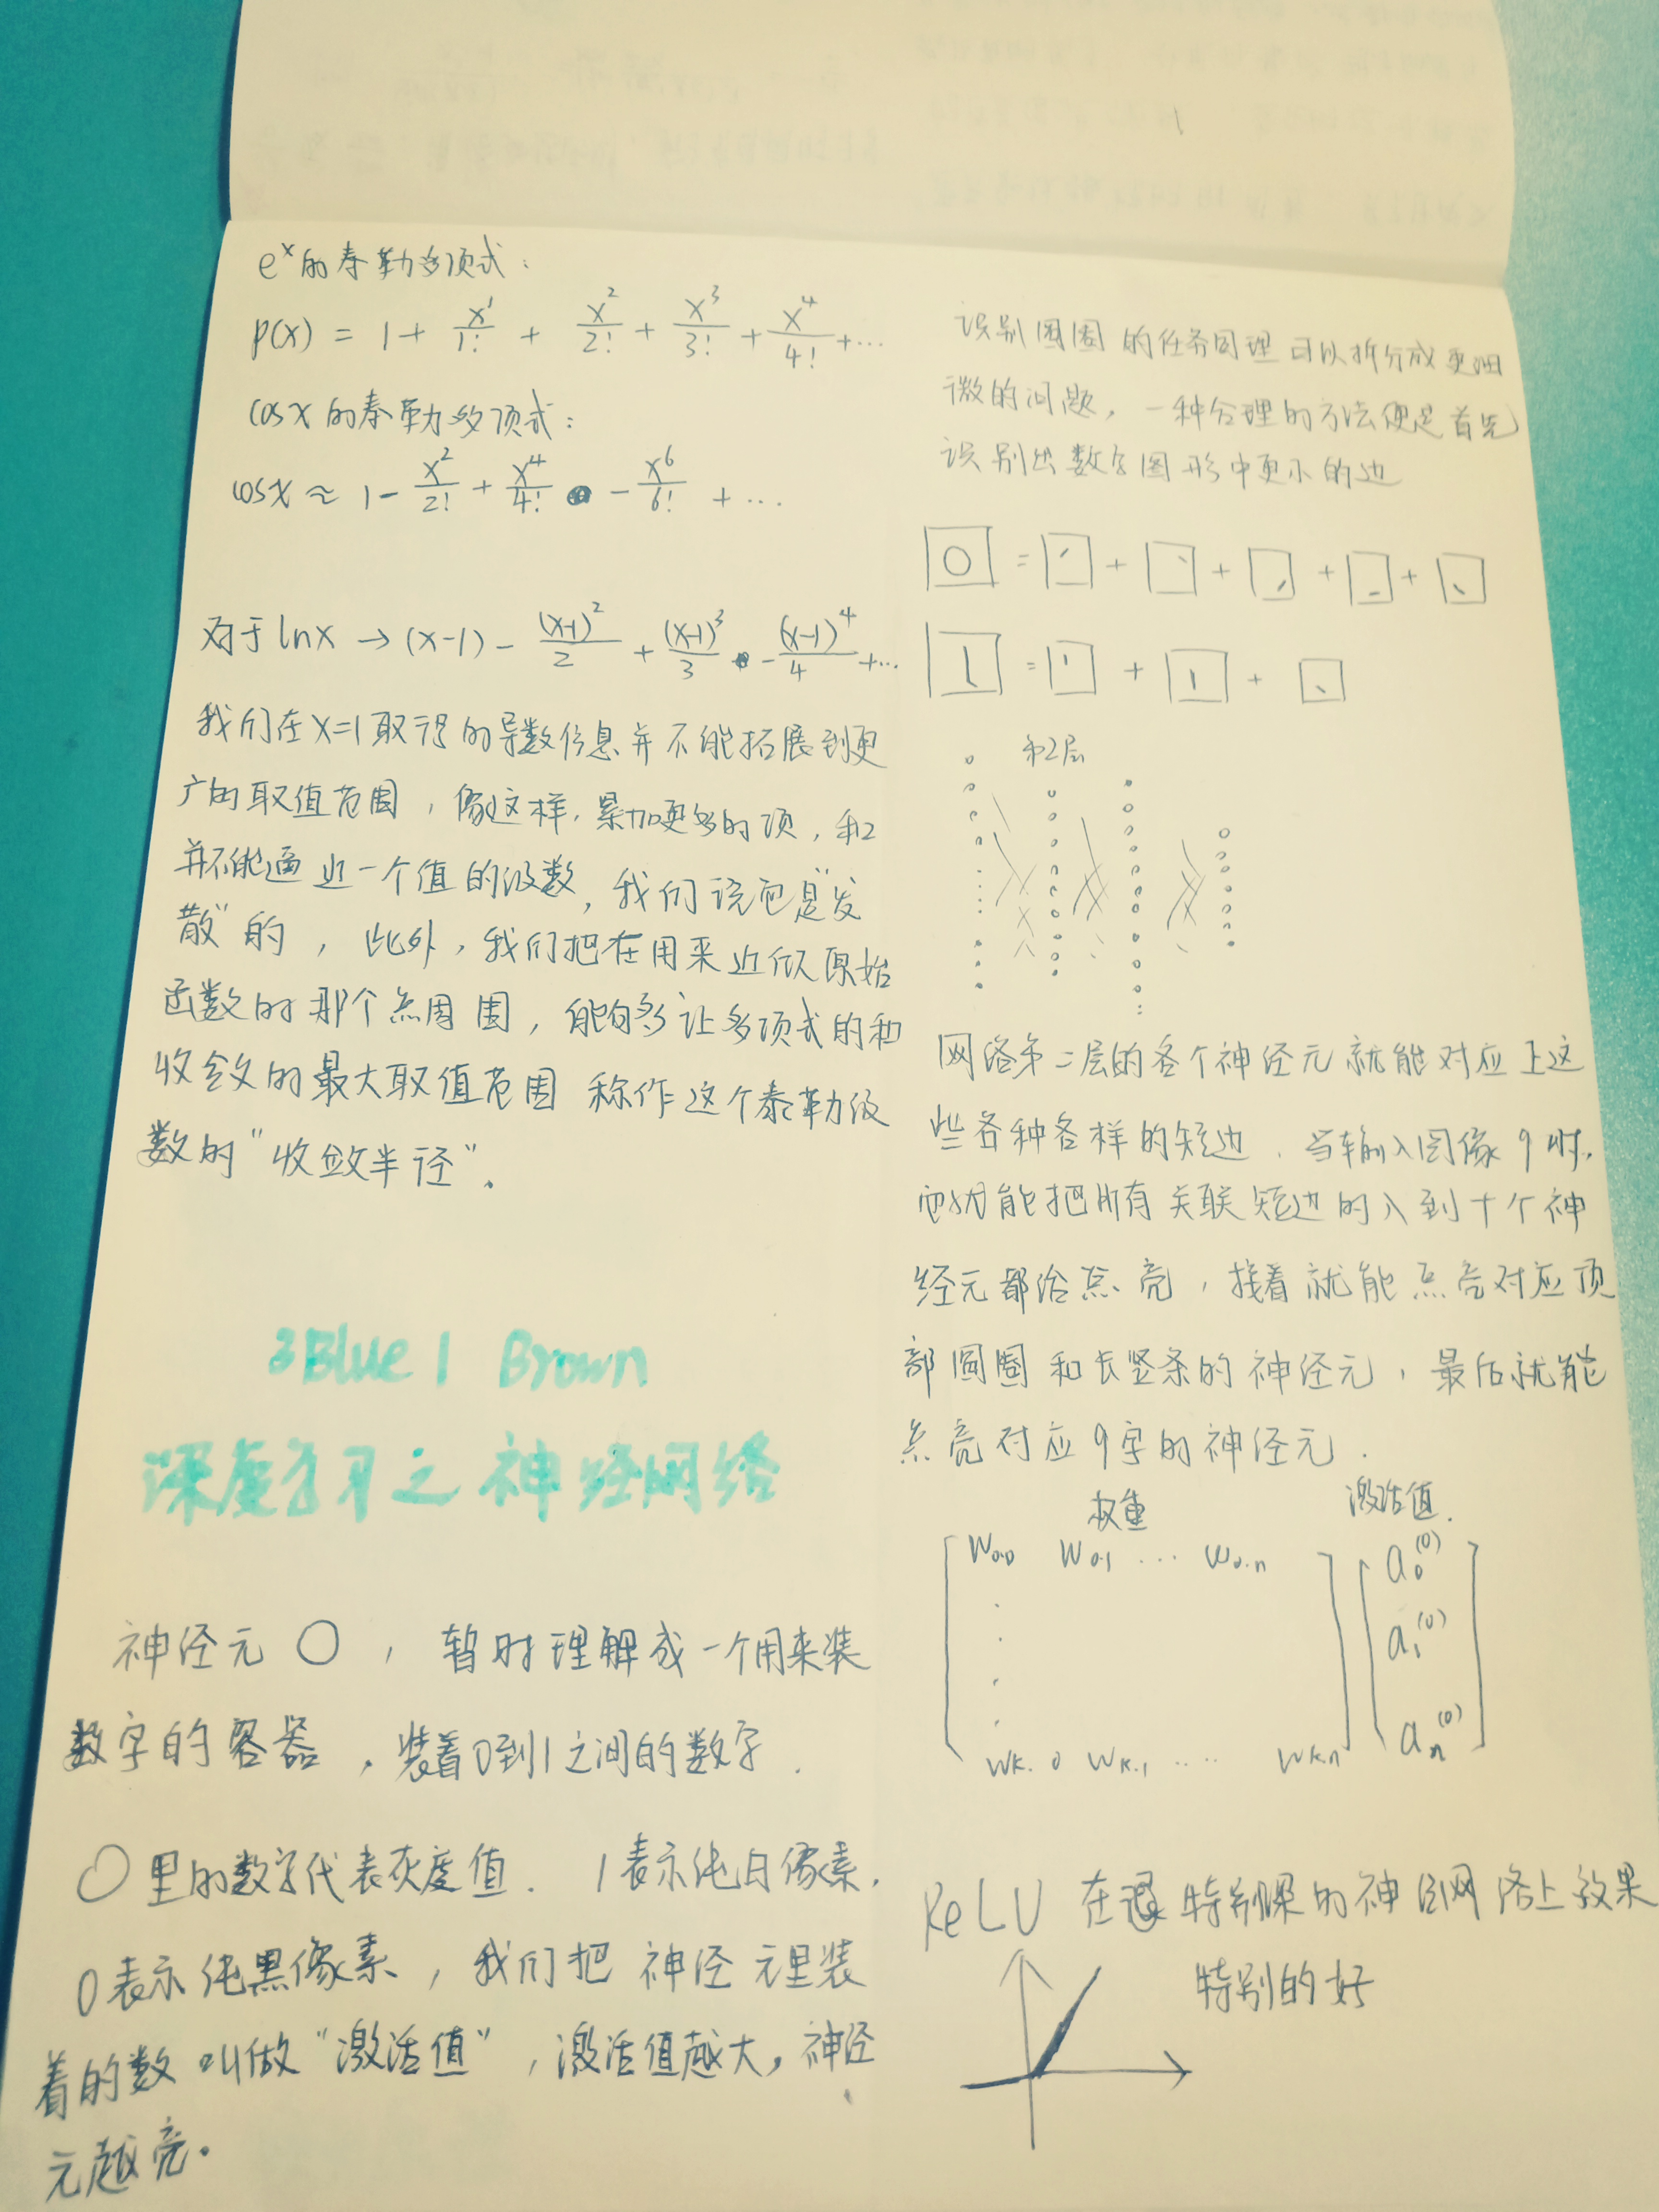 e^x的泰勒多项式：
P(x) = 1 + x^1/1! + x^2/2! + x^3/3! + x^4/4! + …
cosx的泰勒多项式：
cosx ≈ 1 - x^2/2! + x^4/4! - x^6/6! + …
对于lnx → (x-1) - (x-1)^2/2 + (x-1)^3/3 - (x-1)^4/4 + …
我们在x=1取得的导数信息并不能拓展到更
广的取值范围，像这样，累加更多的项，和
并不能逼近一个值的级数，我们说它是"发
散"的，此外，我们把在用来近似原始
函数的那个点周围，能够让多项式的和
收敛的最大取值范围 称作这个泰勒级
数的"收敛半径"。
3Blue1Brown
深度学习之神经网络
神经元 〇，暂时理解成一个用来装
数字的容器，装着0到1之间的数字.
〇里的数字代表灰度值. 1表示纯白像素,
0表示纯黑像素，我们把神经元里装
着的数叫做"激活值"，激活值越大，神经
元越亮。
识别圈圈的任务同理可以拆分成更细
微的问题，一种合理的方法便是首先
识别出数字图形中更小的边
0 = + + + +
1 = + +
第2层
网络第二层的各个神经元就能对应上这
些各种各样的短边. 当输入图像9时,
它就能把所有关联短边的八到十个神
经元都给点亮，接着就能点亮对应顶
部圆圈和长竖条的神经元，最后就能
点亮对应9字的神经元.
权重 激活值.
w0.0 w0.1 … w0.n a0^(0)
a1^(0)
wk.0 wk.1 … wk.n an^(0)
ReLU 在 特别深的神经网络上效果
特别的好